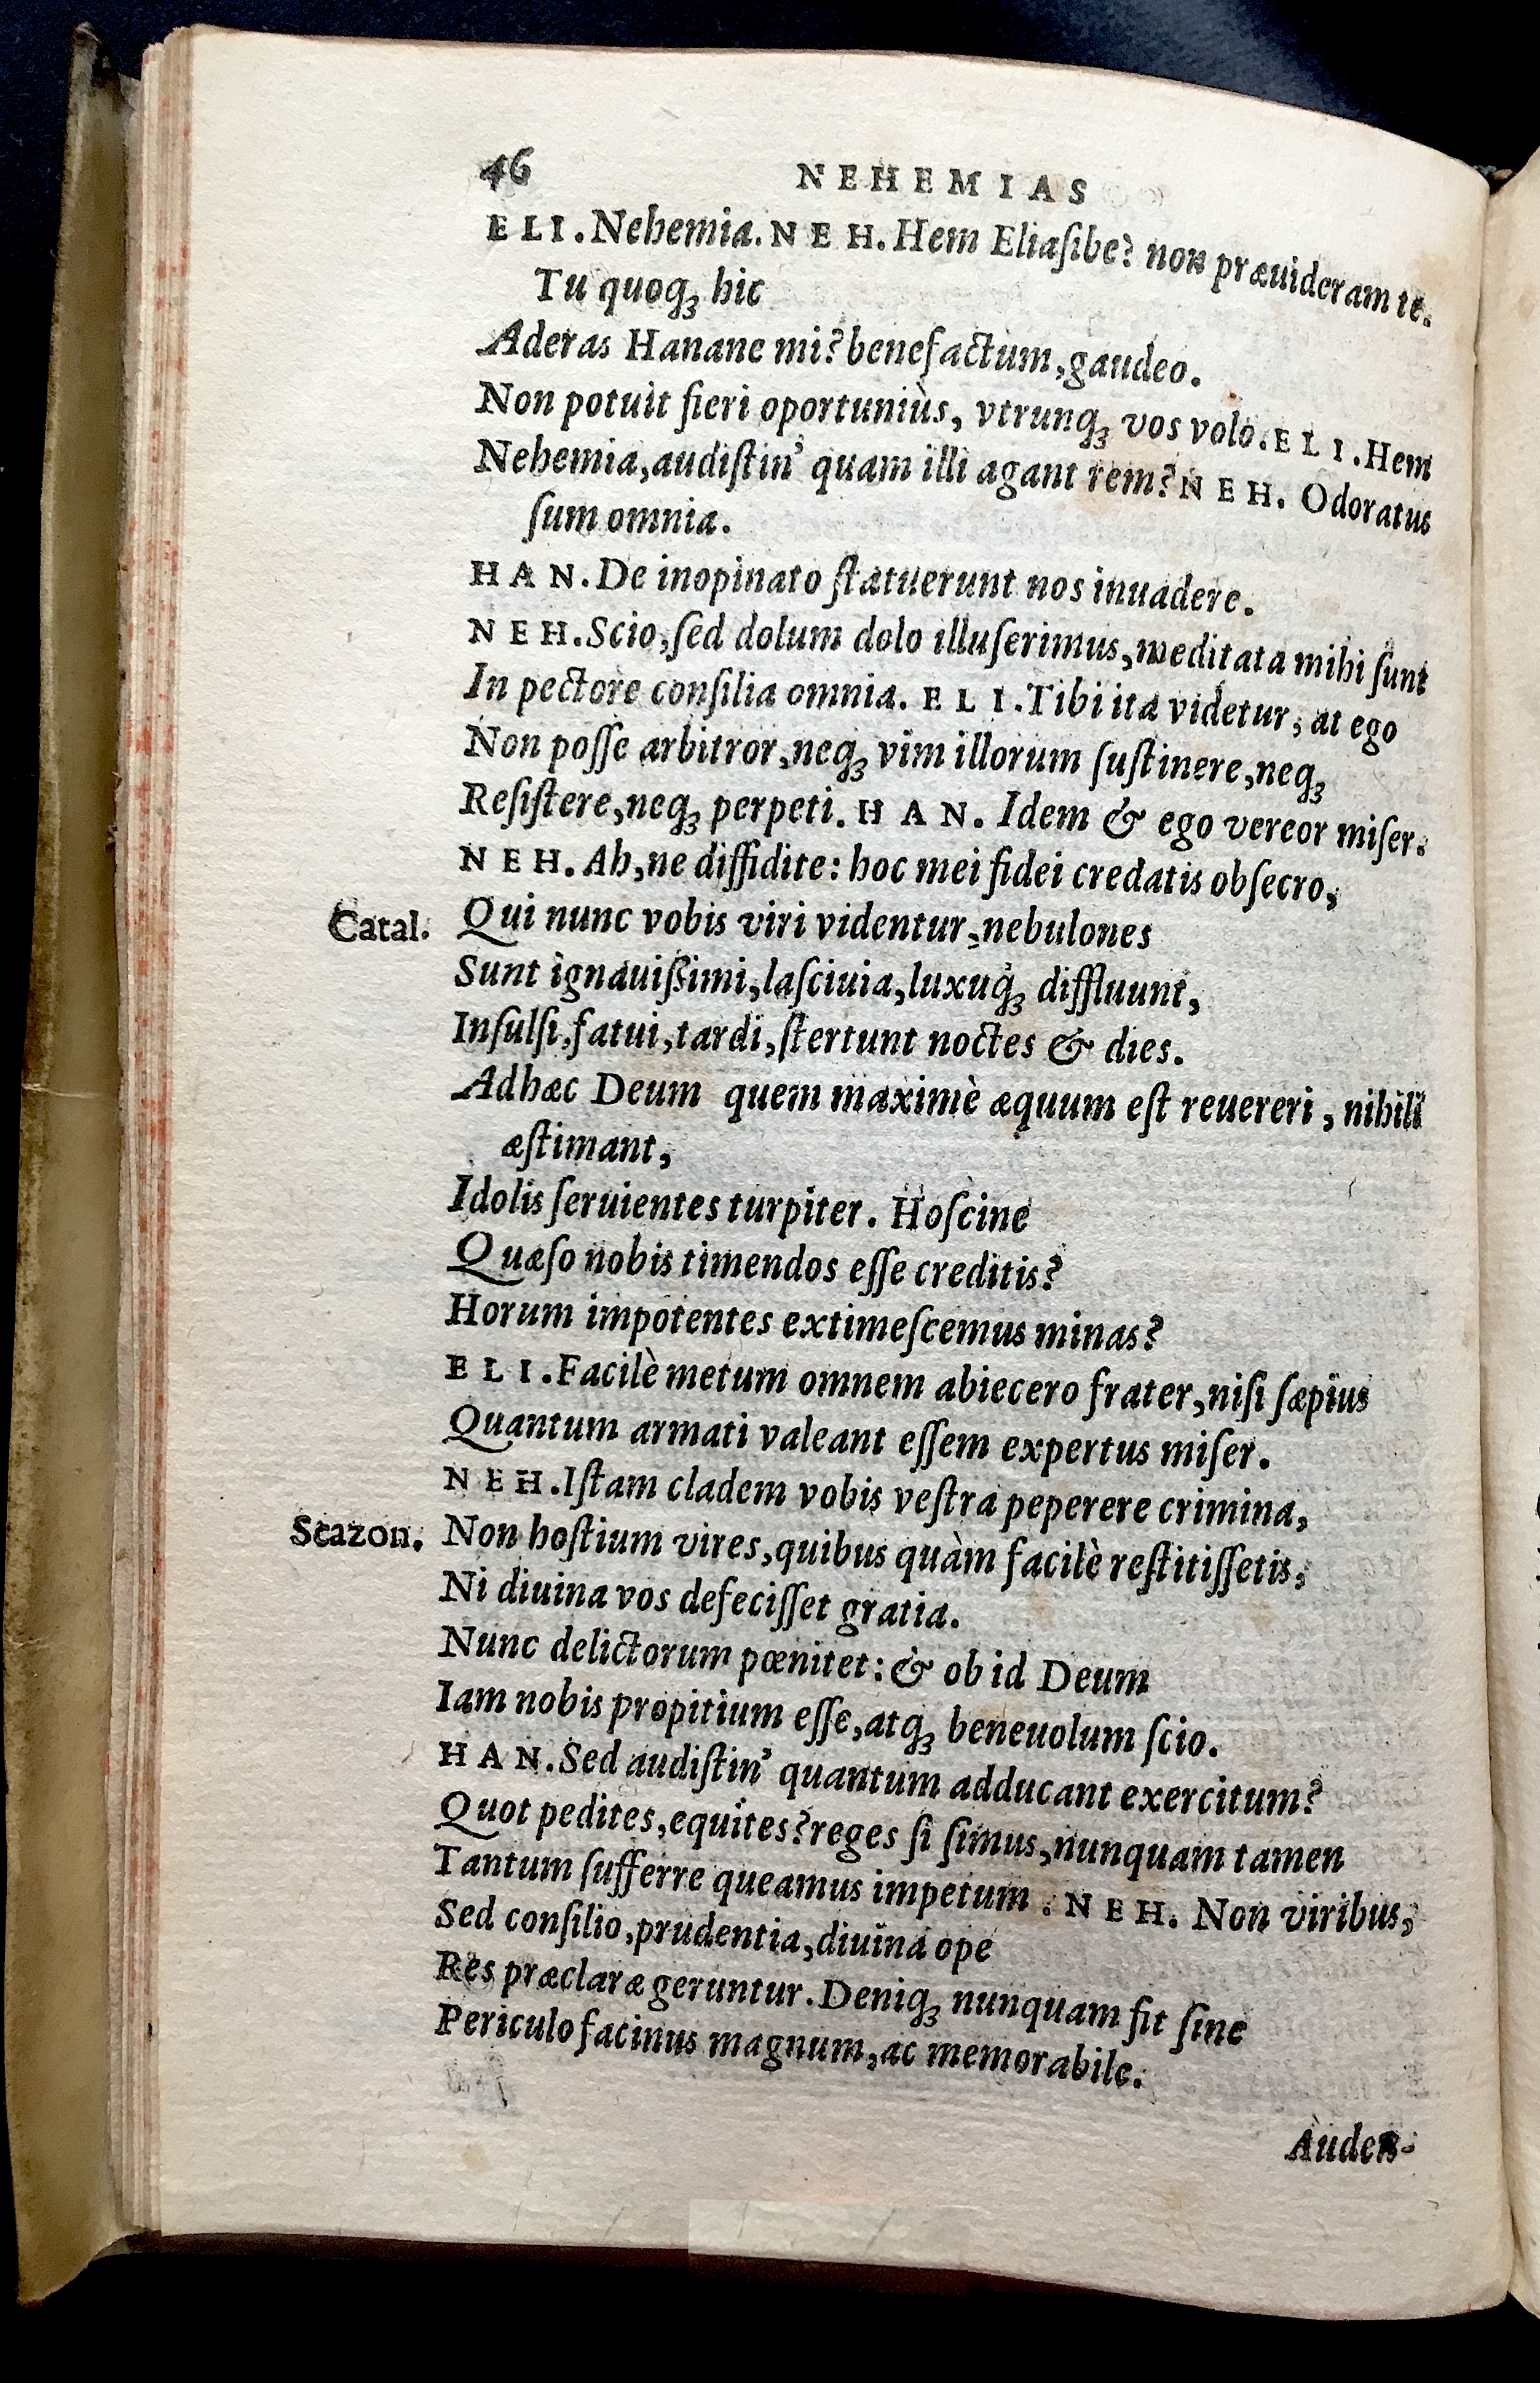 46 NEHEMIAS
ELI. Nehemia. NEH. Hem Eliaſibe? non præuideram te.
Tu quoqꝫ hic
Aderas Hanane mi? benefactum, gaudeo.
Non potuit fieri oportuniùs, vtrunqꝫ vos volo. ELI. Hem
Nehemia, audiſtin' quam illi agant rem? NEH. Odoratus
ſum omnia.
HAN. De inopinato ſtatuerunt nos inuadere.
NEH. Scio, ſed dolum dolo illuſerimus, meditata mihi ſunt
In pectore conſilia omnia. ELI. Tibi ita videtur, at ego
Non poſſe arbitror, neqꝫ vim illorum ſuſtinere, neqꝫ
Reſiſtere, neqꝫ perpeti. HAN. Idem & ego vereor miſer.
NEH. Ah, ne diffidite: hoc mei fidei credatis obſecro,
Catal. Qui nunc vobis viri videntur, nebulones
Sunt ignauißimi, laſciuia, luxuq́ꝫ diffluunt,
Inſulſi, fatui, tardi, ſtertunt noctes & dies.
Adhæc Deum quem maximè æquum eſt reuereri, nihili
æſtimant,
Idolis ſeruientes turpiter. Hoſcine
Quæſo nobis timendos eſſe creditis?
Horum impotentes extimeſcemus minas?
ELI. Facilè metum omnem abiecero frater, niſi ſæpius
Quantum armati valeant eſſem expertus miſer.
NEH. Iſtam cladem vobis veſtra peperere crimina,
Scazon. Non hoſtium vires, quibus quàm facilè reſtitiſſetis,
Ni diuina vos defeciſſet gratia.
Nunc delictorum pœnitet: & ob id Deum
Iam nobis propitium eſſe, atqꝫ beneuolum ſcio.
HAN. Sed audiſtin' quantum adducant exercitum?
Quot pedites, equites? reges ſi ſimus, nunquam tamen
Tantum ſufferre queamus impetum. NEH. Non viribus,
Sed conſilio, prudentia, diuina ope
Res præclaræ geruntur. Deniqꝫ nunquam fit ſine
Periculo facinus magnum, ac memorabile.
Auden-